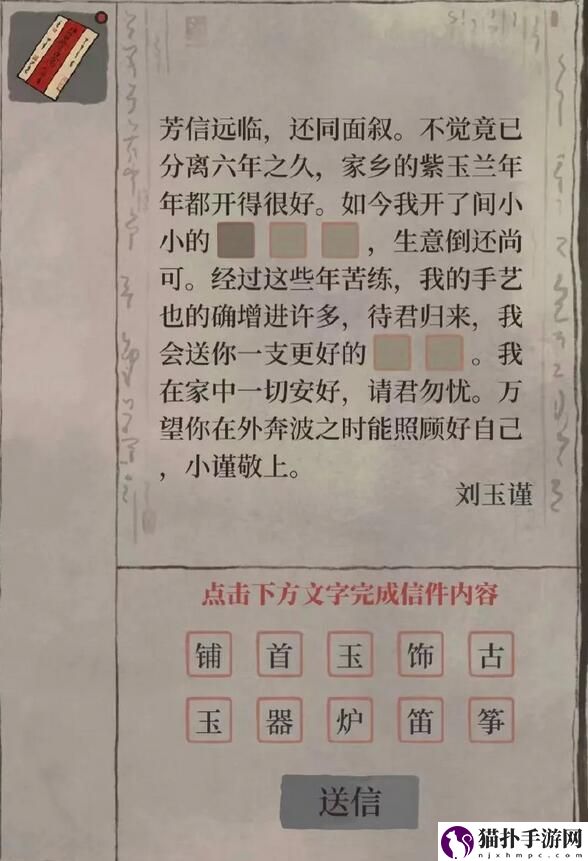 芳信远临，还同面叙。不觉竟已
分离六年之久，家乡的紫玉兰年
年都开得很好。如今我开了间小
小的，生意倒还尚
可。经过这些年苦练，我的手艺
也的确增进许多，待君归来，我
会送你一支更好的。我
在家中一切安好，请君勿忧。万
望你在外奔波之时能照顾好自己
，小谨敬上。
刘玉谨
点击下方文字完成信件内容
铺首玉饰古
玉器炉笛筝
送信
猫扑手游网
njxhmpc.com